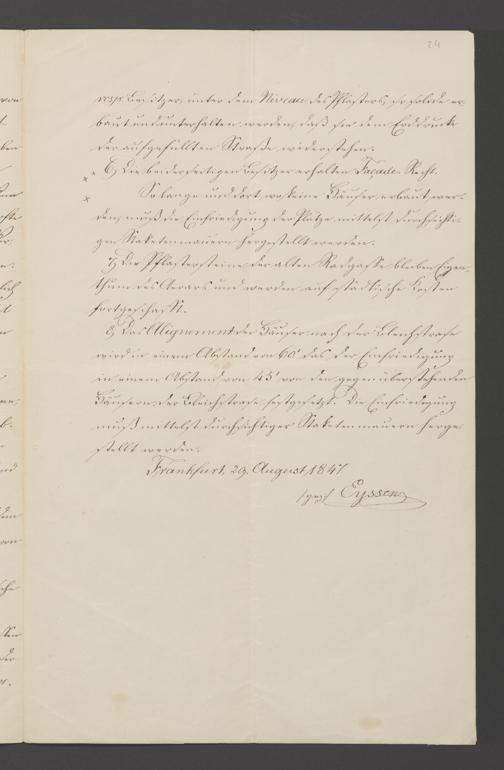 24
resp. Besitzer unter dem Niveau des Pflasters, so solide er-
baut und unterhalten werden, daß sie dem Erddrucke
der aufgefüllten Straße widerstehen.
6, Die beiderseitigen Besitzer erhalten Façade-Recht.
So lange und dort, wo keine Häuser erbaut wer-
den, muß die Einfriedigung der Plätze mittelst durchsichti-
gen Staketenmauern hergestellt werden.
7, Die Pflastersteine der alten Radgasse bleiben Eigen-
thum des Aerars und werden auf städtische Kosten
fortgeschafft.
8, Das Alignement der Häuser nach der Bleichstraße
wird in einem Abstand von 60' das der Einfriedigung
in einem Abstand von 45' von den gegenüberstehenden
Häusern der Bleichstraße festgesetzt. Die Einfriedigung
muß mittelst durchsichtiger Staketenmauern herge-
stellt werden.
Frankfurt, 29 August 1847
/gez/ Eyssen